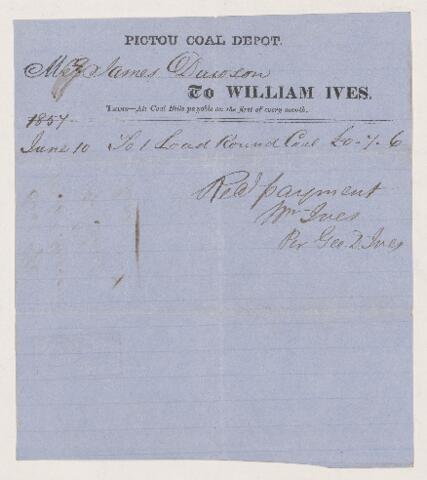 PICTOU COAL DEPOT.
James Dawson
To WILLIAM IVES.
TERMS—All Coal Bills payable on the first of every month.
1857
June 10 To 1 Load Round Coal £0-7-6
Rec'd payment
Wm Ives
Per Geo. D. Ives